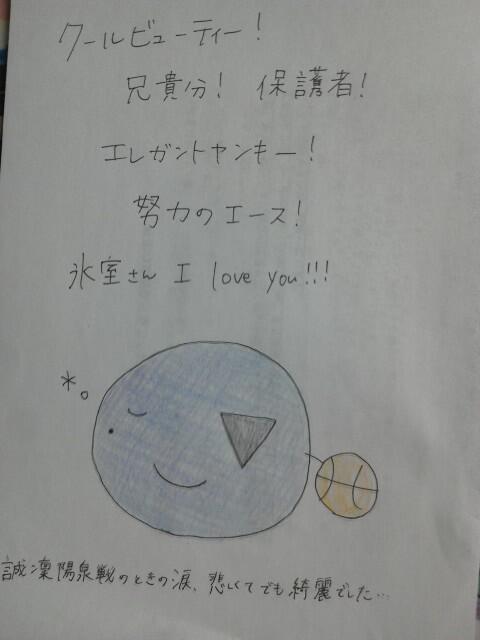 クールビューティー！
兄貴分！ 保護者！
エレガントヤンキー！
努力のエース！
氷室さん I love you!!!
誠凜陽泉戦のときの涙、悲しくてでも綺麗でした…